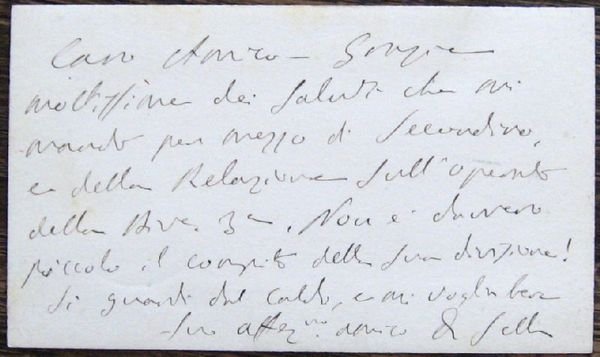 Caro Amico - Grazie
moltissime dei saluti che mi
mandò per mezzo di Secondino,
e della Relazione sull'operato
della Div.e 3a. Non è davvero
piccolo il compito della sua divisione!
Si guardi dal caldo, e mi voglia bene
Suo affez.mo amico Q Sella